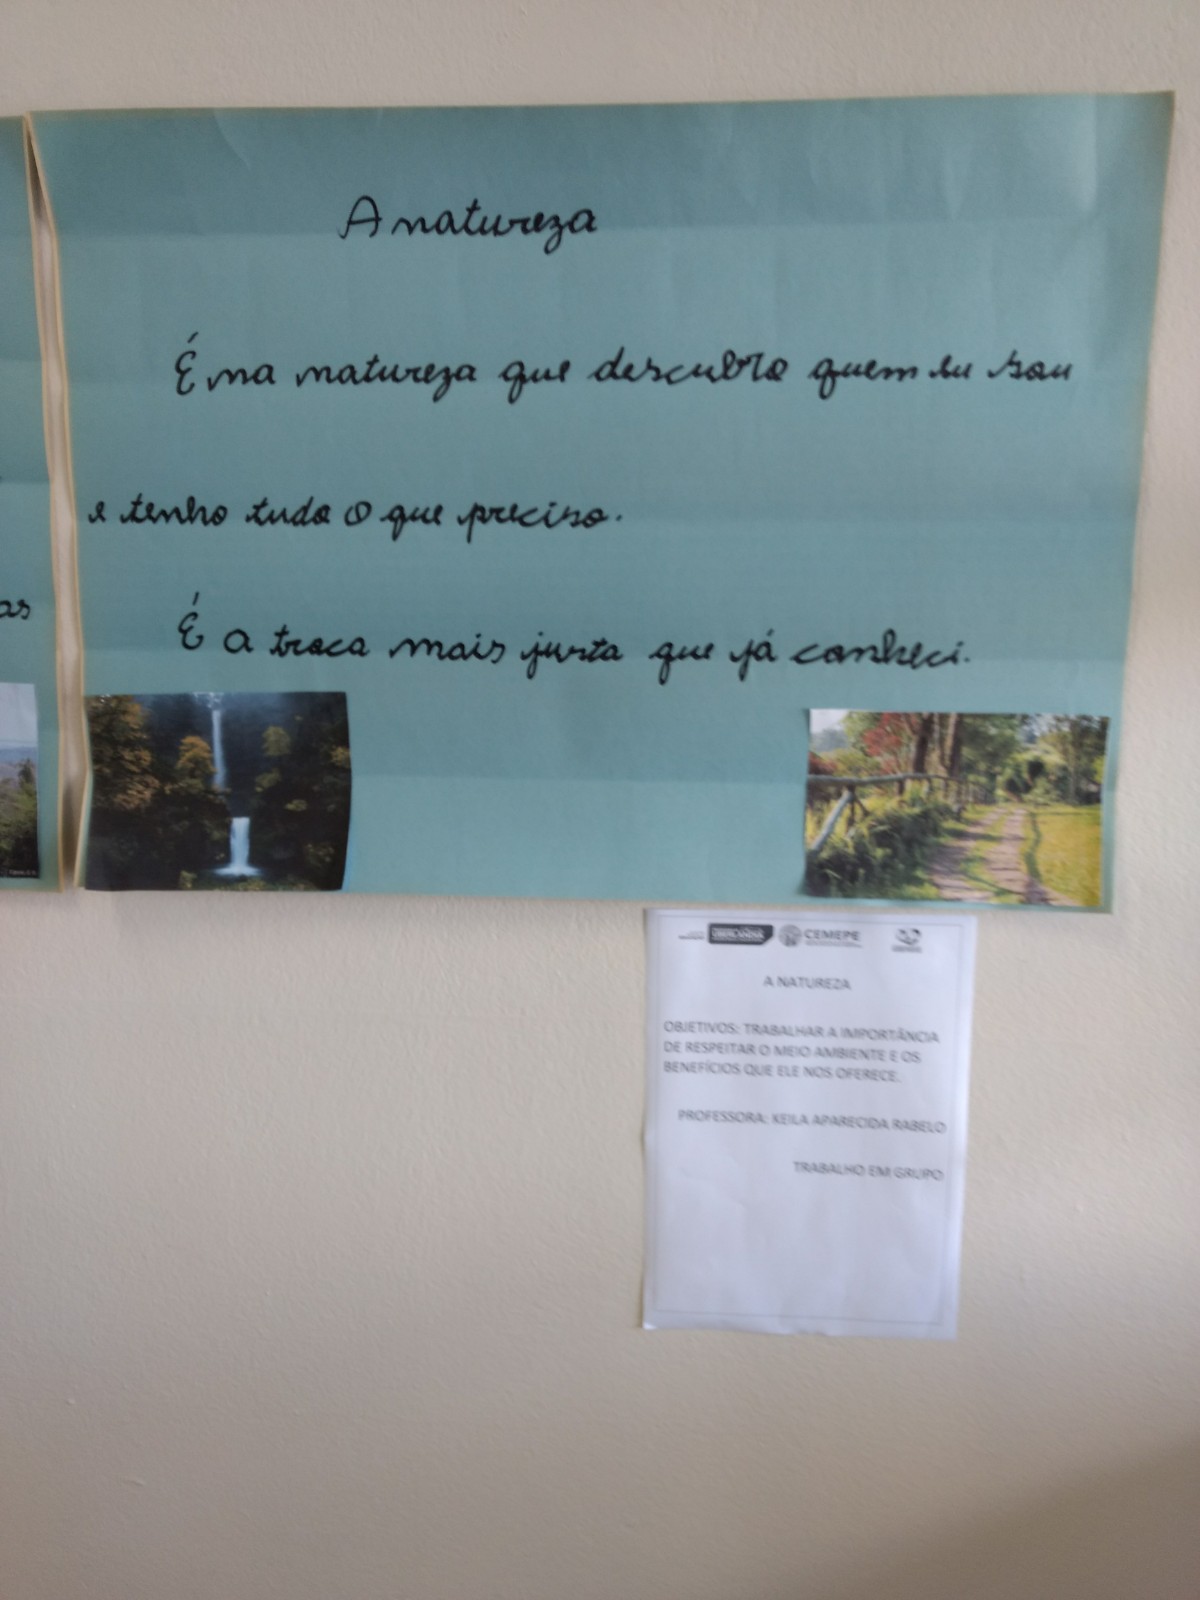 A natureza
É na natureza que descubro quem eu sou
e tenho tudo o que preciso.
É a troca mais justa que já conheci.
as
CEMEPE
A NATUREZA
OBJETIVOS: TRABALHAR A IMPORTÂNCIA
DE RESPEITAR O MEIO AMBIENTE E OS
BENEFÍCIOS QUE ELE NOS OFERECE.
PROFESSORA: KEILA APARECIDA RABELO
TRABALHO EM GRUPO